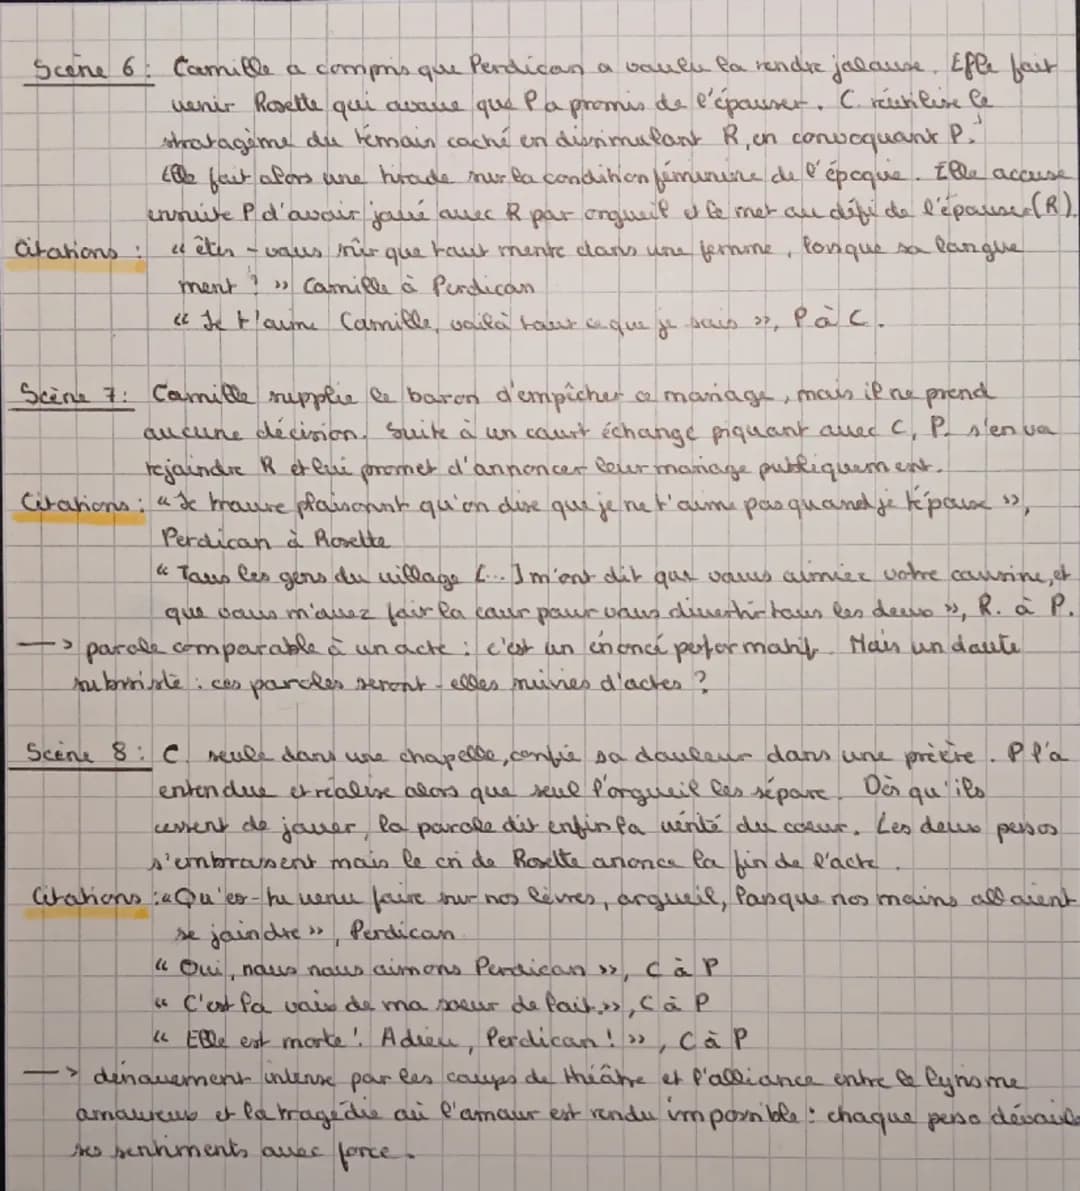 Scène 6 : Camille a compris que Perdican a voulu la rendre jalouse. Elle fait
venir Rosette qui avoue que P a promis de l'épouser. C. réutilise le
stratagème du témoin caché en dissimulant R, en convoquant P.
Elle fait alors une tirade sur la condition féminine de l'époque. Elle accuse
ensuite P d'avoir joué avec R par orgueil et le met au défi de l'épouser (R).
Citations : « êtes-vous sûr que tout mente dans une femme, lorsque sa langue
ment ? » Camille à Perdican
« Je t'aime Camille, voilà tout ce que je sais », P à C.
Scène 7 : Camille supplie le baron d'empêcher ce mariage, mais il ne prend
aucune décision. Suite à un court échange piquant avec C, P. s'en va
rejoindre R et lui promet d'annoncer leur mariage publiquement.
Citations : « Je trouve plaisant qu'on dise que je ne t'aime pas quand je t'épouse »,
Perdican à Rosette
« Tous les gens du village [...] m'ont dit que vous aimiez votre cousine, et
que vous m'avez fait la cour pour vous divertir tous les deux », R. à P.
—> parole comparable à un acte : c'est un énoncé performatif. Mais un doute
subsiste : ces paroles seront-elles suivies d'actes ?
Scène 8 : C. seule dans une chapelle, confie sa douleur dans une prière. P l'a
entendue et réalise alors que seul l'orgueil les sépare. Dès qu'ils
cessent de jouer, la parole dit enfin la vérité du coeur. Les deux persos
s'embrassent mais le cri de Rosette anonce la fin de l'acte.
Citations : « Qu'es-tu venu faire sur nos lèvres, orgueil, lorsque nos mains allaient
se joindre », Perdican
« Oui, nous nous aimons Perdican », C à P
« C'est la voix de ma soeur de lait. », C à P
« Elle est morte ! Adieu, Perdican ! », C à P
—> dénouement intense par les coups de théâtre et l'alliance entre le lyrisme
amoureux et la tragédie où l'amour est rendu impossible : chaque perso dévoile
ses sentiments avec force.